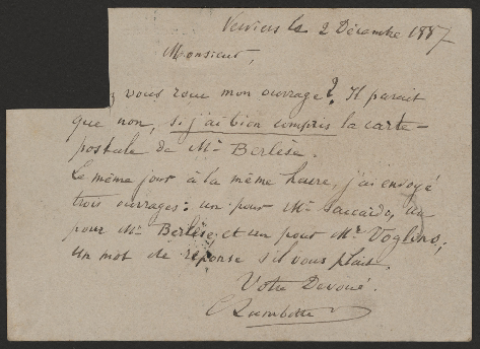 Verviers le 2 Décembre 1887
Monsieur,
z vous reçu mon ouvrage? Il parait
que non, si j'ai bien compris la carte-
postale de Mr Berlèse.
Le même jour à la même heure, j'ai envoyé
trois ouvrages: un pour Mr Saccardo, un
pour Mr Berlèse et un pour Mr Voglino;
Un mot de réponse s'il vous plait.
Votre Dévoué.